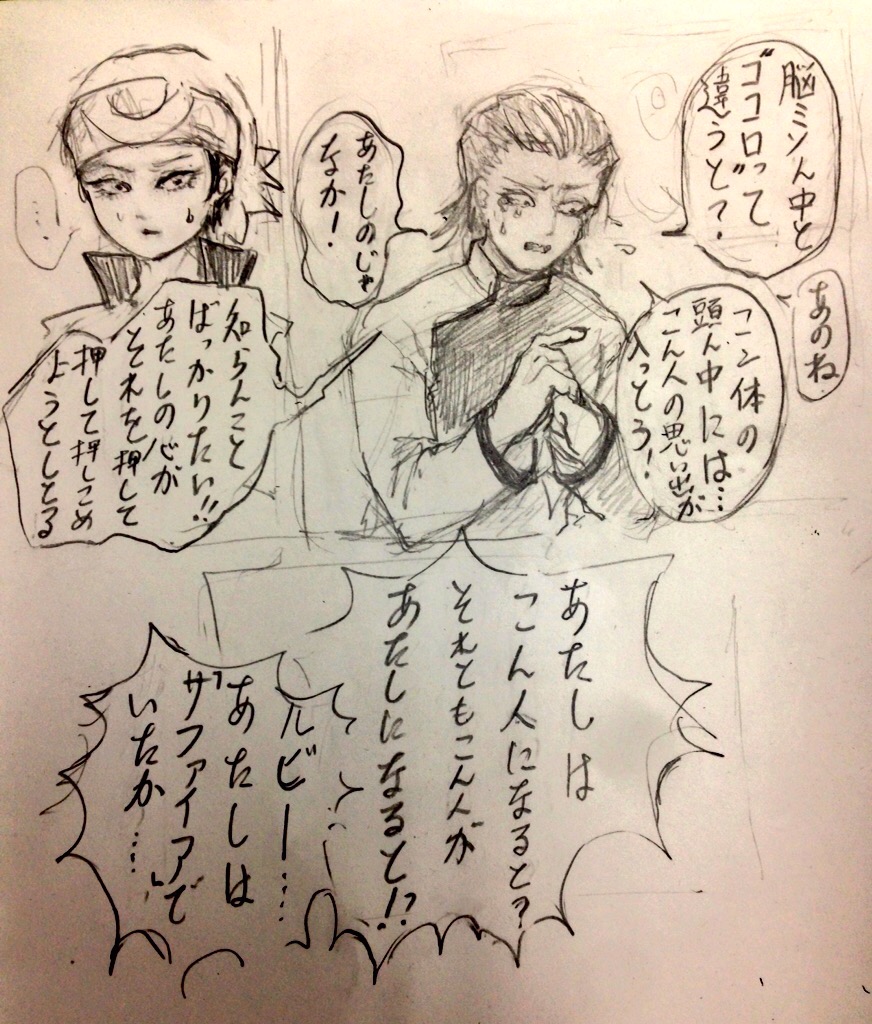 脳ミソん中と
"ココロ"って
違うと?
あのね
コン体の
頭ん中には…
こん人の思い出が
入っとろ!
あたしのじゃ
なか!
知らんこと
ばっかりたい!!
あたしの心が
それを押して
押して押しこめ
ようとしとる
…
あたしは
こん人になると?
それともこん人が
あたしになると!?
ルビー……
あたしは
サファイアで
いたか……